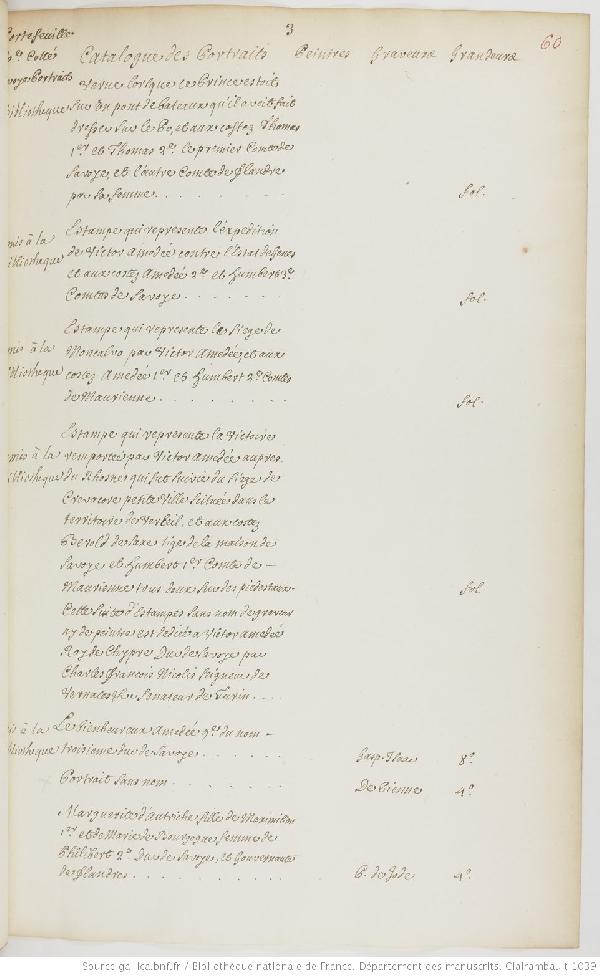 3
60
Portefeuille
Catalogue des Portraits Peintres Graveurs Grandeurs
Savoye Portraits
Verue lorsque le Prince estoit
Bibliotheque sur un pont de bateaux qu'il avoit fait
dresser sur le Po, et aux costez Thomas
1er et Thomas 2e le premier Comte de
Savoye, et l'autre Comte de Flandre
par sa femme. . . . . . . fol.
Estampe qui represente l'expedition
mis à la de Victor Amedée contre l'Estat de Genes
bibliotheque et aux costez Amedée 2e et Humbert 3e
Comtes de Savoye. . . . . . fol.
Estampe qui represente le Siege de
mis à la Moncalvo par Victor Amedée, et aux
bibliotheque costez Amedée 1er et Humbert 2e Comtes
de Maurienne. . . . . . . fol.
Estampe qui represente la Victoire
mis à la remportée par Victor Amedée aupres
bibliotheque du Rhosne qui fut suivie du Siege de
Crevacore petite Ville scituée dans le
territoire de Verseil, et aux costez
Berold de Saxe tige de la maison de
Savoye et Humbert 1er Comte de
Maurienne tous deux sur des piedestaux. fol.
Cette Suite d'Estampes sans nom de graveur
ny de peintre est dediée a Victor Amedée
Roy de Chypre Duc de Savoye par
Charles François Nicolis Seigneur de
Senateur de Turin. . . .
mis à la Le bienheureux Amedée 9e du nom
bibliotheque troisieme duc de Savoye. . . . . . 8o.
Portrait sans nom. . . . . . De Bienne 4o.
Marguerite d'Autriche fille de Maximilien
1er et de Marie de Bourgogne femme de
Philibert 2e Duc de Savoye, et Gouvernante
de Flandres. . . . . . . P. de Jode 4o.
Source gallica.bnf.fr / Bibliothèque nationale de France. Département des manuscrits. Clairambault 1039